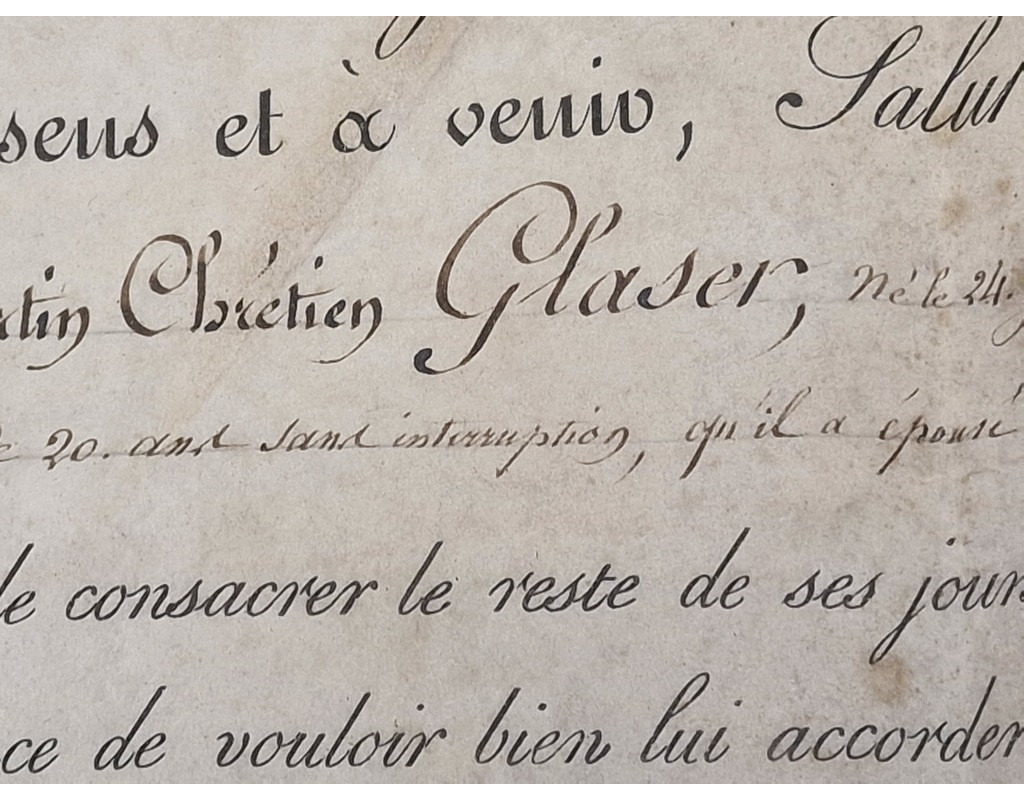 sens et à venir, Salut
rtin Chrétien Glaser, né le 24.
20. ans sans interruption, qu'il a épousé
de consacrer le reste de ses jours
ce de vouloir bien lui accorder